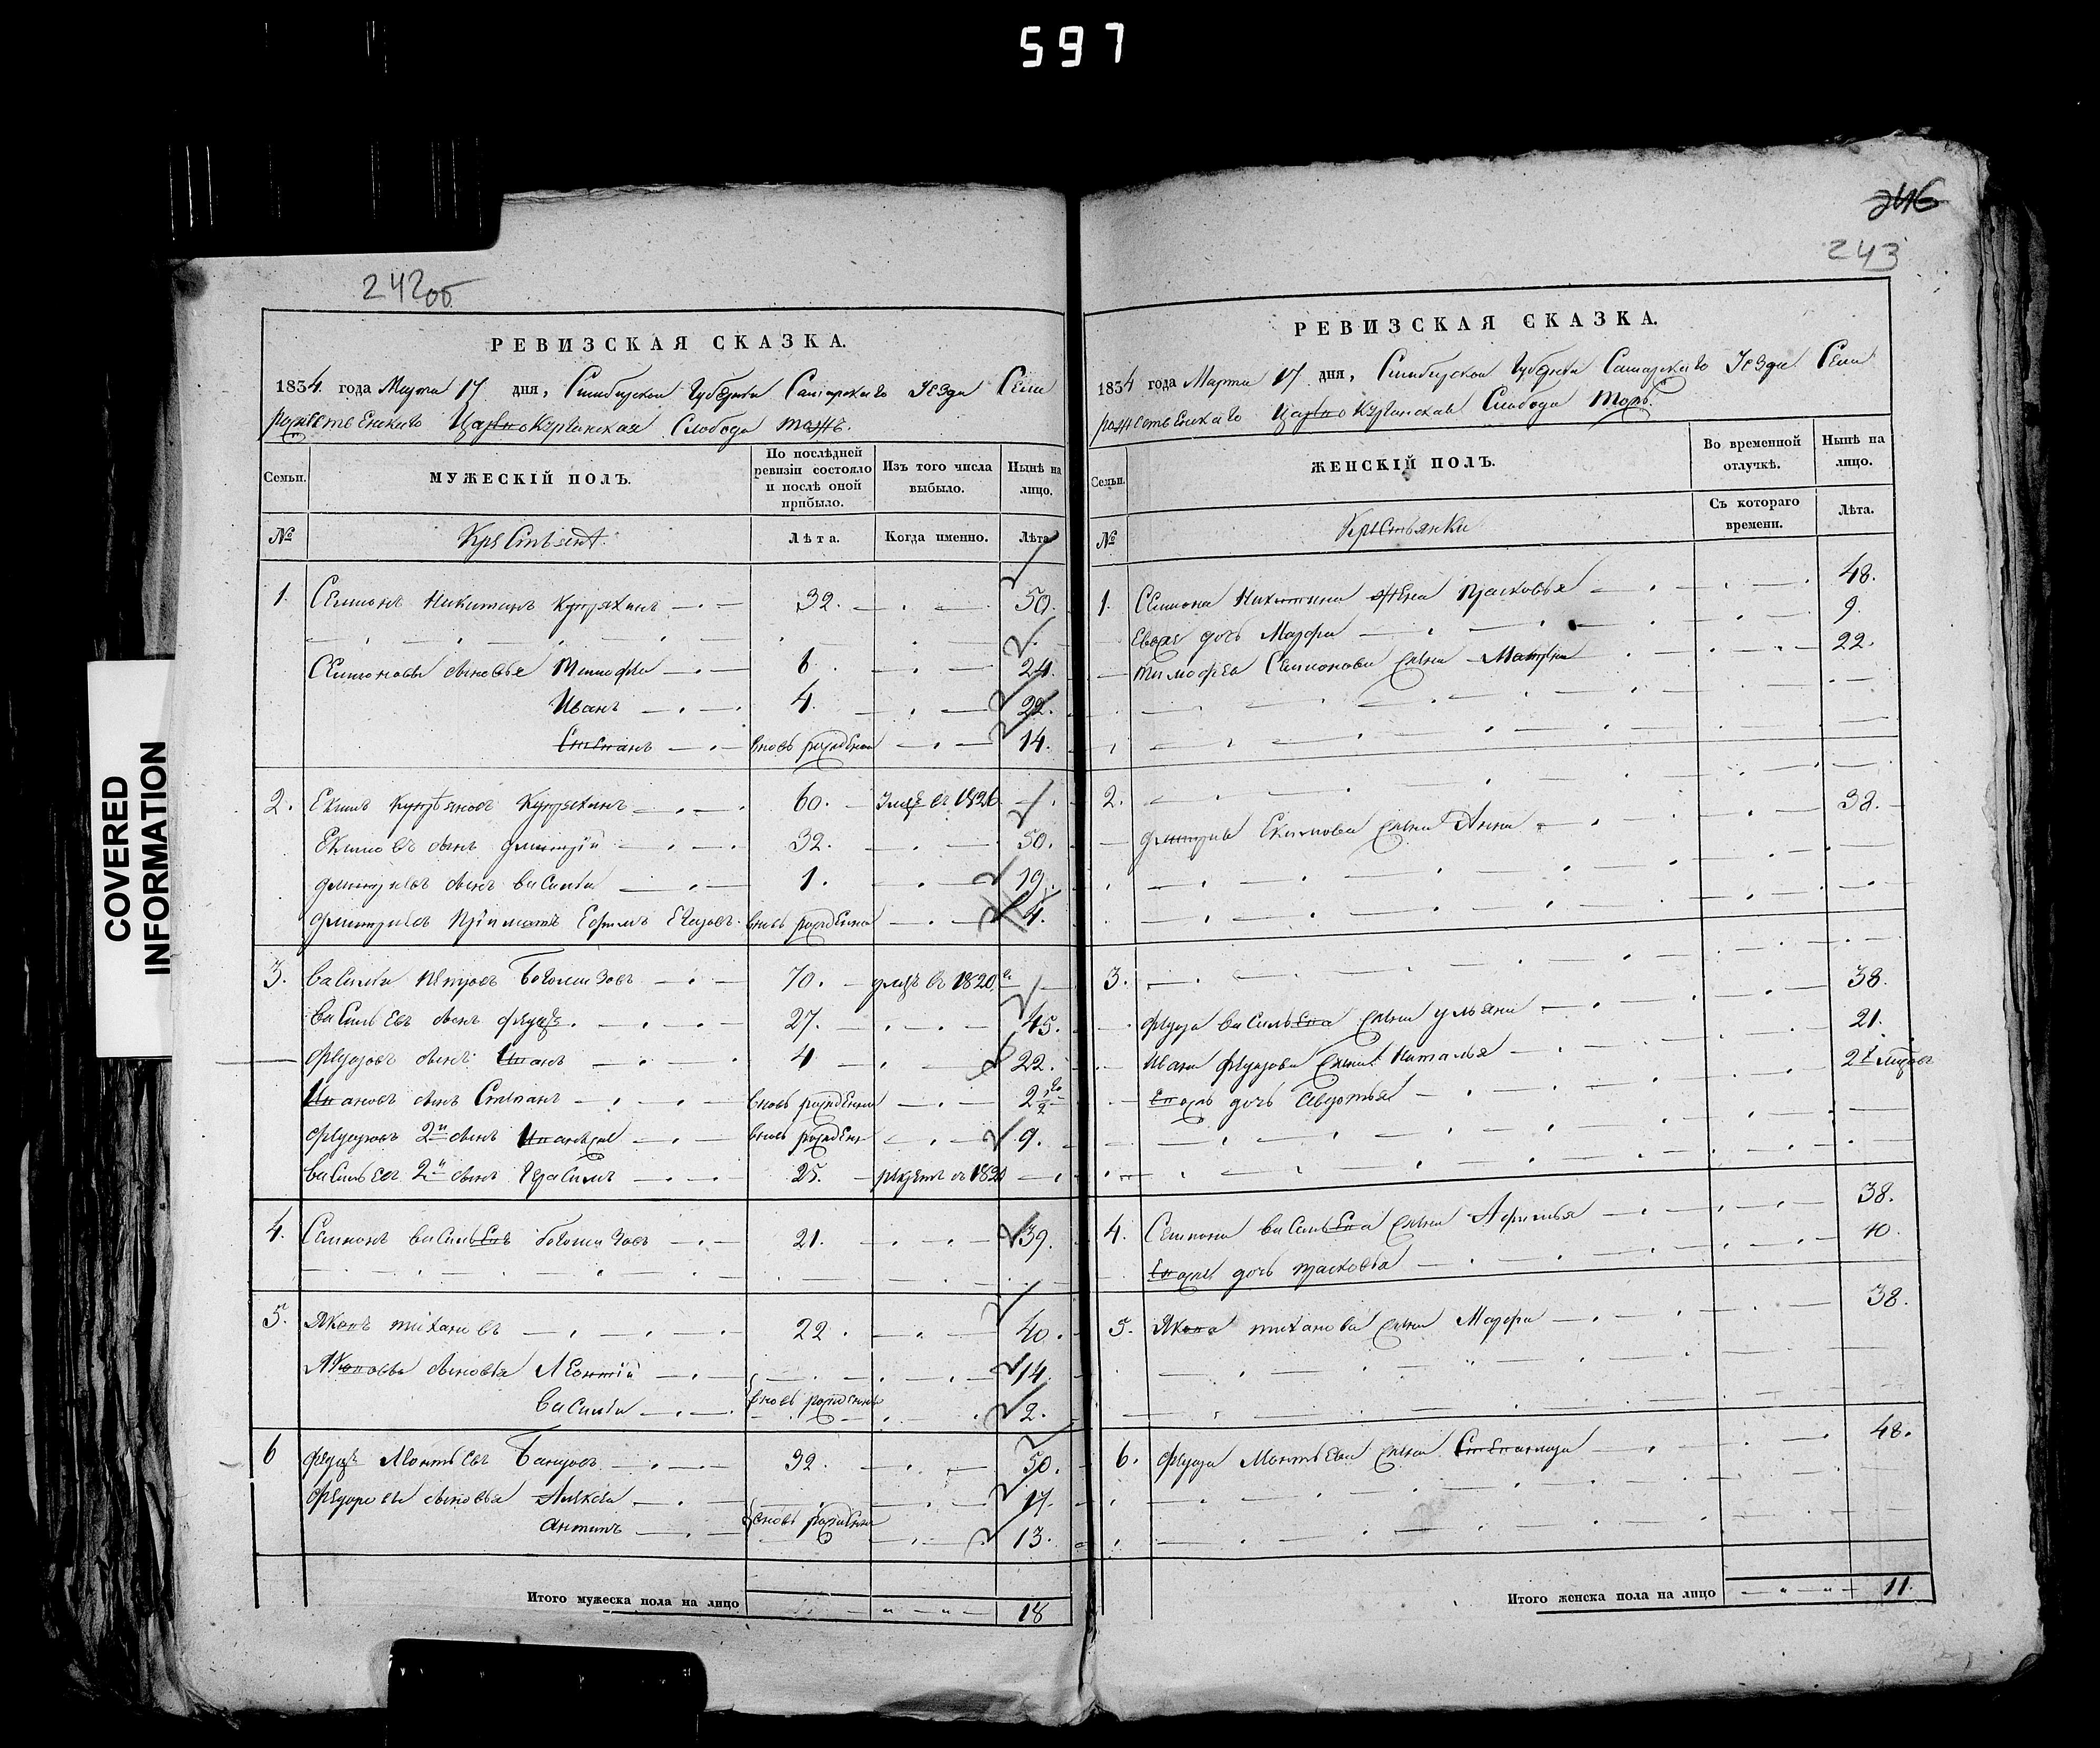 597
COVERED
INFORMATION
242об
РЕВИЗСКАЯ СКАЗКА.
1834. года Марта 17 дня, Симбирской Губернiи Самарскаго Уезда Села
рождественскаго Царево Курганская Слобода тожъ.
Семьи. МУЖЕСКIЙ ПОЛЪ. По послѣдней ревизiи состояло и послѣ оной прибыло. Изъ того числа выбыло. Нынѣ на лицо.
№ Крестьянъ. Лѣта. Когда именно. Лѣта.
1. Семионъ Никитинъ Купряхинъ 32. 50.
Семионовы сыновья Тимофеи 6. 24.
Иванъ 4. 22.
Степанъ вновь рожденны 14.
2. Екимъ Купряхинъ 60. въ 1826
Екимовъ сынъ Дмитрiй 32. 50.
Дмитриевъ сынъ василiи 1. 19.
Дмитриевъ Прiиматъ Ефимъ Егоровъ вновь рожденны 4.
3. василiи Петровъ Богомазовъ 70. въ 1820
васильевъ сынъ федоръ 27. 45.
федоровъ сынъ Иванъ 4 22.
Ивановъ сынъ Степанъ вновь рожденны 2 1/2
федоровъ 2й сынъ вновь рожденъ 9.
васильевъ 2й сынъ Герасимъ 25. рекрутъ въ
4. Семионъ васильевъ богомазовъ 21. 39.
5. Яковъ тихановъ 22. 40.
Яковлевы сыновья Леонтiй 14
василiи вновь рожденны 2.
6 федоръ Леонтьевъ 32. 50.
федоровы сыновья Алексеи 17.
антипъ вновь рожденны 13.
Итого мужеска пола на лицо 18
246
243
РЕВИЗСКАЯ СКАЗКА.
1834 года Марта 17 дня, Симбирской Губернiи Самарскаго Уезда Села
рождественскаго Царево Курганская Слобода тожъ.
Семьи. ЖЕНСКIЙ ПОЛЪ. Во временной отлучкѣ. Нынѣ на лицо.
№ Крестьянки Съ котораго времени. Лѣта.
1. Семиона Никитина жена Прасковья 48.
Евоже дочь Марфа 9.
тимофея Семионова жена Матрена 22.
2.
Дмитрия Екимова жена Анна 38.
3.
федора васильева жена ульяна 38.
Ивана федорова жена Наталья 21.
Евоже дочь Авдотья 2
4. Семиона васильева жена Афимья 38.
Евоже дочь прасковья 10.
5. Якова тиханова жена Марфа 38.
6. федора Леонтьева жена Степанида 48.
Итого женска пола на лицо 11.